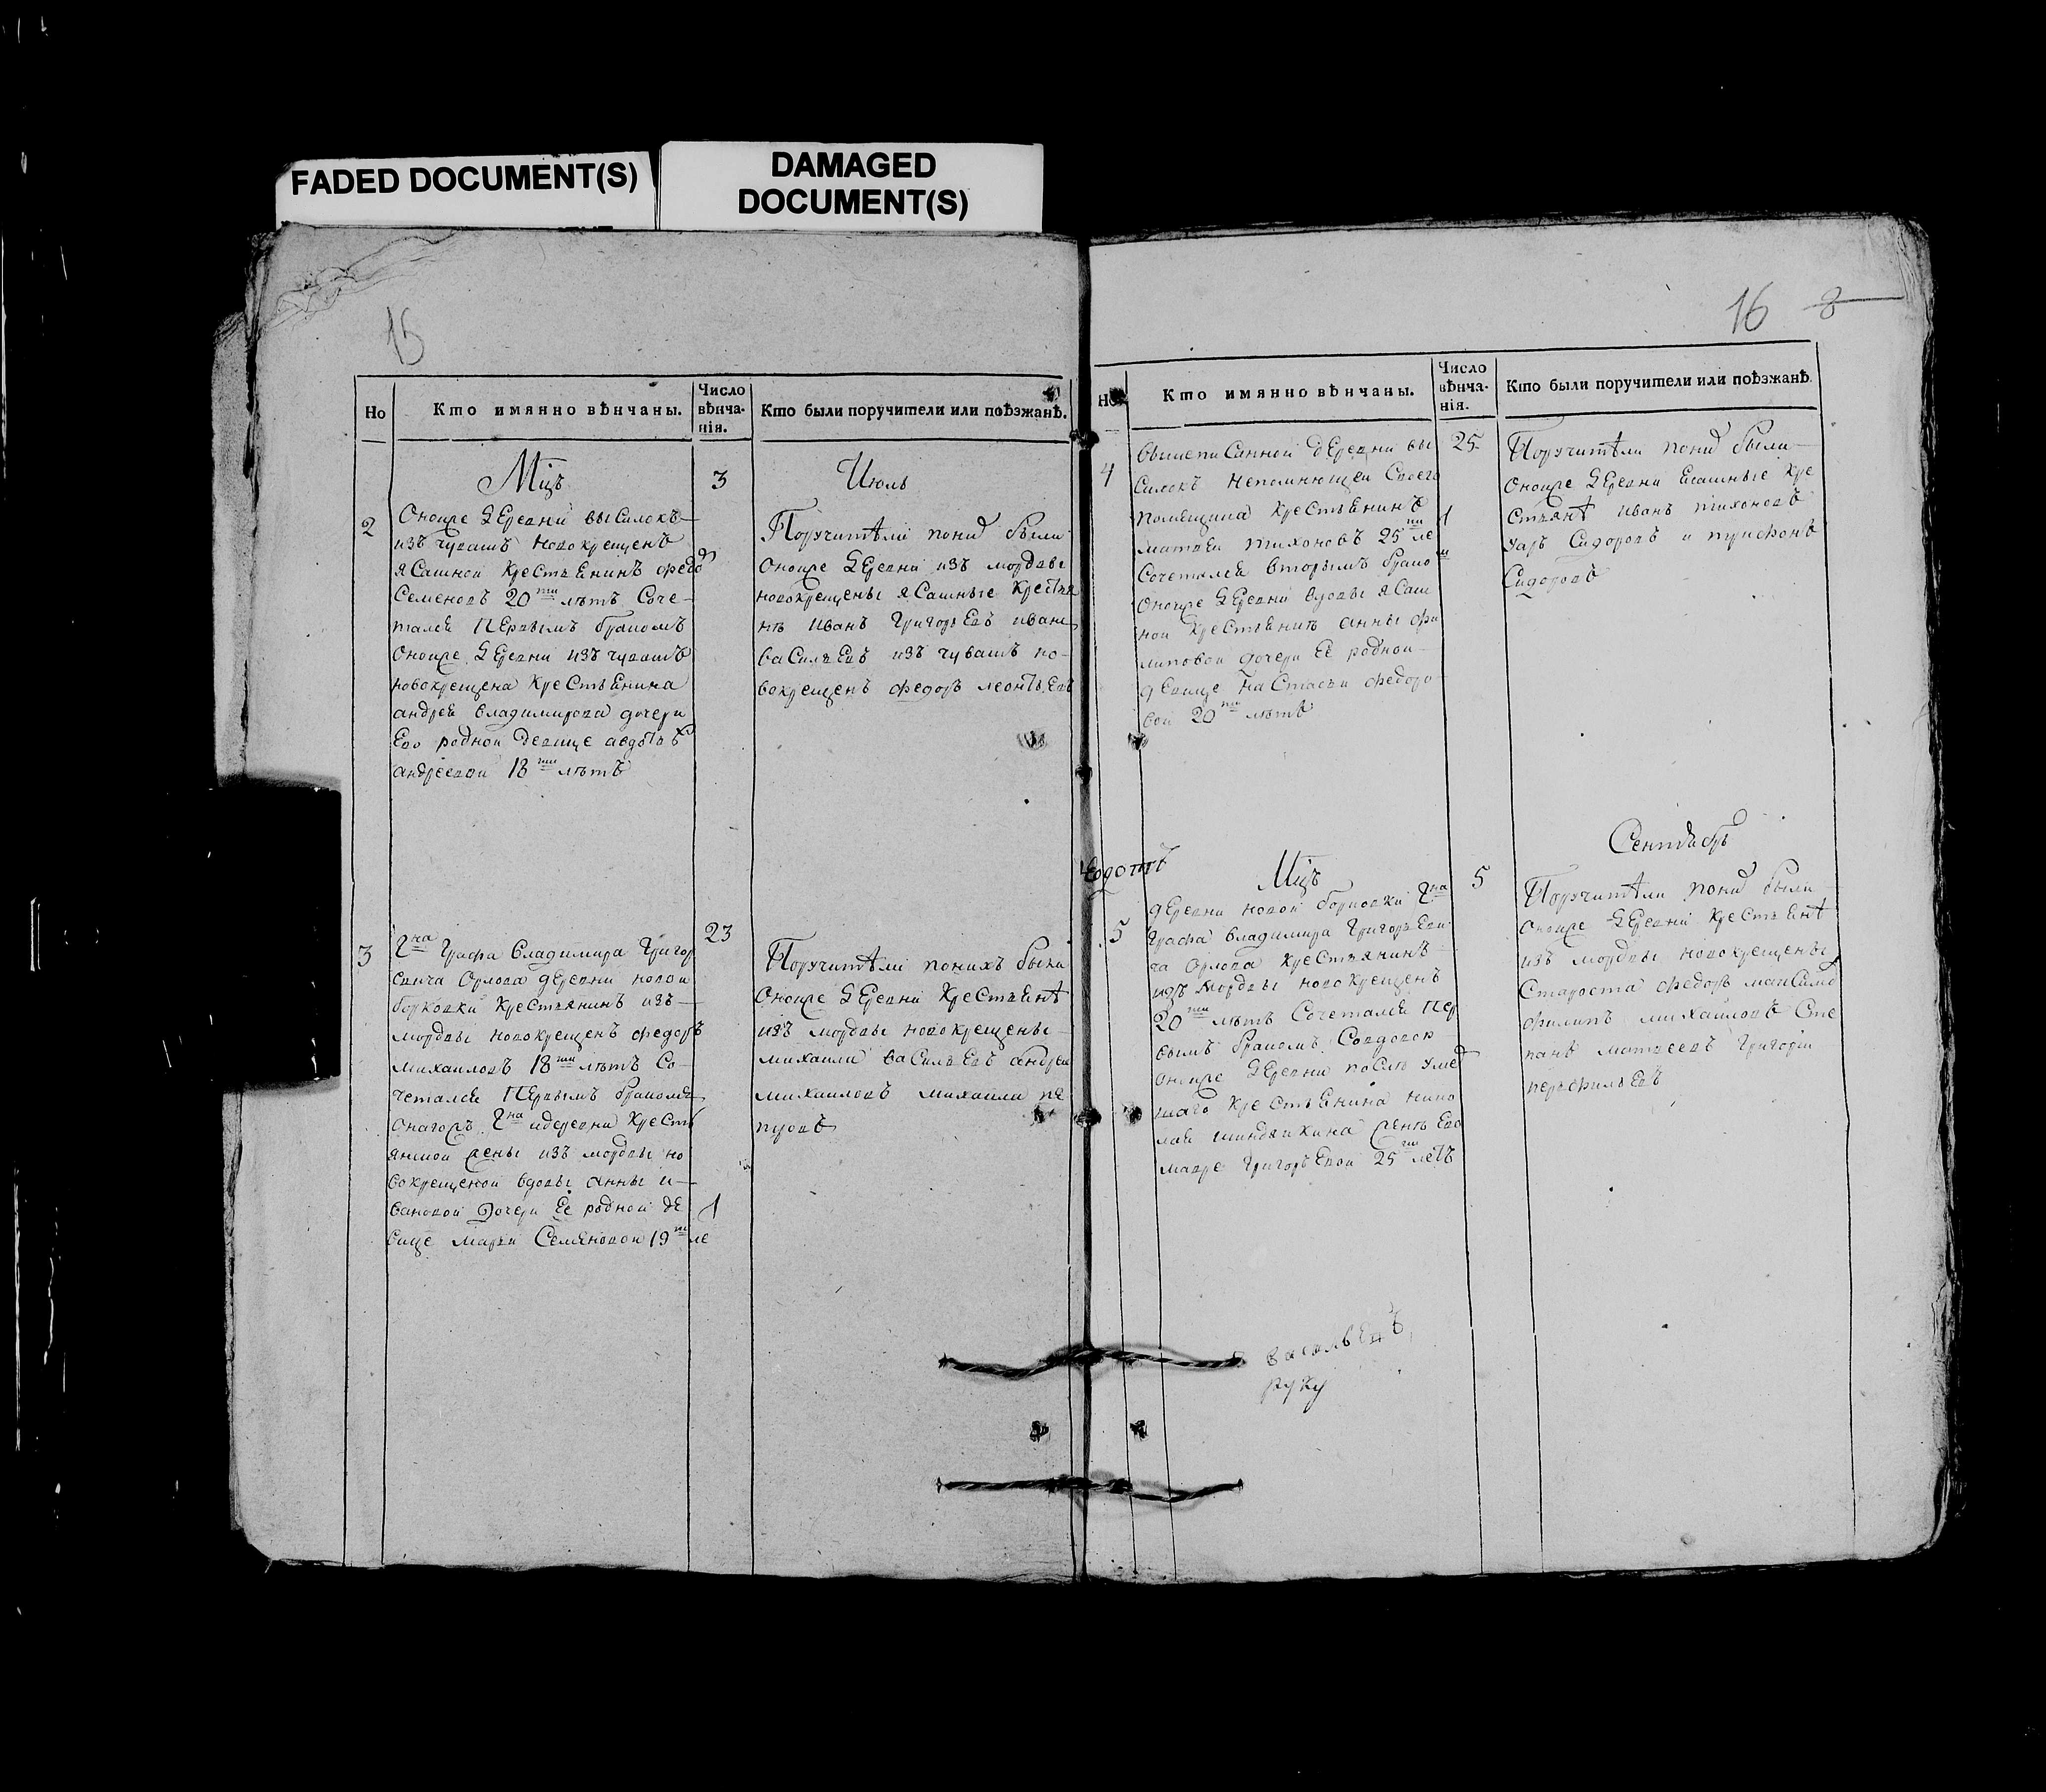 FADED DOCUMENT(S)
DAMAGED
DOCUMENT(S)
15
Но
Кто имянно вѣнчаны.
Число
вѣнча-
нія.
Кто были поручители или поѣзжанѣ.
Мцъ
3
Июль
2
Оноиже деревни выселокъ
изъ чувашъ новокрещенъ
ясашной крестьянинъ федоръ
Семеновъ 20 ти лѣтъ Соче-
тался первымъ бракомъ
Оноиже деревни изъ чувашъ
новокрещена крестьянина
андрея владимирова дочери
Ево родной девице авдотьѣ
андреевой 18 ти лѣтъ
Поручители поних были
Оноиже деревни изъ мордвы
новокрещены ясашные крестья
нѣ иванъ григорьевъ иванъ
васильевъ изъ чувашъ но-
вокрещенъ федоръ леонтьевъ
3
23
Гна Графа Владимира Григорь
евича Орлова деревни новой
борковки крестьянинъ изъ
мордвы новокрещенъ федоръ
михаиловъ 18 ти лѣтъ Со-
четался первымъ бракомъ
Онагожъ Гна идеревни кресть
янской жены изъ мордвы но
вокрещеной вдовы анны и-
вановой дочери Ее родной де
вице марьи Семеновой 19 ти ле
Поручители понихъ были
Оноиже деревни крестьянѣ
изъ мордвы новокрещены
михаила васильевъ андреи
михаиловъ михаила пе
16 8
Но
Кто имянно вѣнчаны.
Число
вѣнча-
нія.
Кто были поручители или поѣзжанѣ.
4
25
Овышеписанной деревни вы
Селокъ непомнющеи Своего
помещика крестьянинъ
матвеи тихоновъ 25 ти ле
Сочетался вторымъ брако
Оноиже деревни вдовы ясаш
ной крестьянинъ анны фи
липовой дочери Ее родной
девице настасьи федоро
вой 20 ти лѣтъ
Поручители поних были
Оноиже деревни ясашные кре
стьянѣ иванъ тихоновъ
уаръ Сидоровъ и трифонъ
Сидоровъ
Мцъ
5
Сентябрь
5
деревни новой борковки Гна
Графа владимира Григорьеви
ча Орлова крестьянинъ
изъ мордвы новокрещенъ
20 ти лѣтъ Сочетался пер
вымъ бракомъ Совдовои
оноиже деревни послѣ умер
шаго крестьянина нико
лая шиндяпкина женъ Ево
мавре григорьевой 25 ти летъ
Поручители поних были
Оноиже деревни крестьянѣ
изъ мордвы новокрещены
Староста федоръ максимо
филипъ михаиловъ Сте
панъ матвеевъ григории
перфильевъ
васильевъ
руку